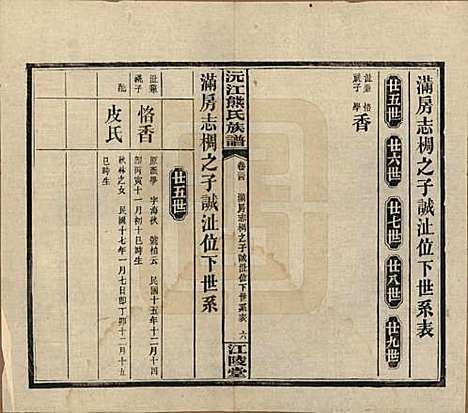 滿房志椆之子誠沚位下世系表
廿五世 廿六世 廿七世 廿八世 廿九世
沚兼祧子
恪學
香
沅江熊氏族譜
卷六四 滿房志椆之子誠沚位下世系表 六
江陵堂
滿房志椆之子誠沚位下世系
廿五世
沚兼祧子
恪香
原派學 字海秋 號柏云 民國十五年十二月十四
卽丙寅十一月初十巳時生
配
皮氏
秋林之女 民國十七年一月七日卽丁卯十二月十五
巳時生